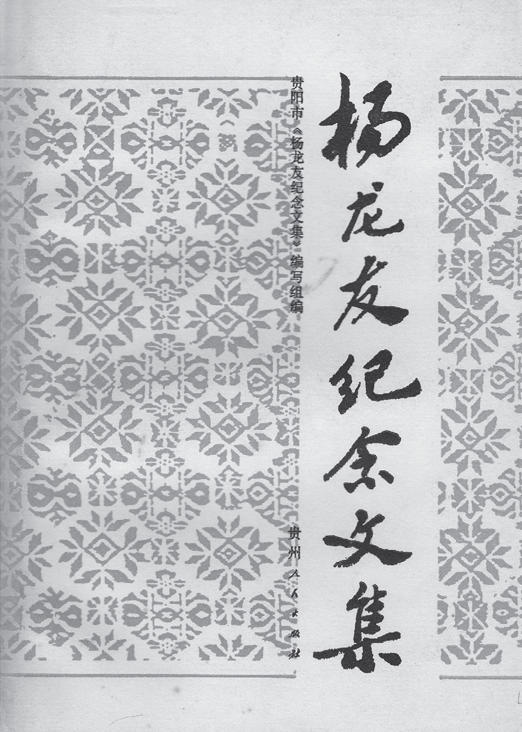 杨龙友纪念文集
贵阳市《杨龙友纪念文集》编写组编
贵州人民出版社